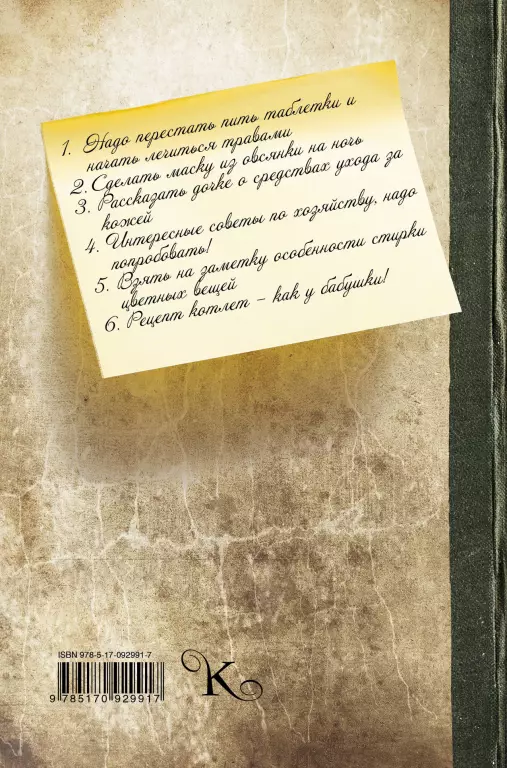 1. Надо перестать пить таблетки и
начать лечиться травами
2. Сделать маску из овсянки на ночь
3. Рассказать дочке о средствах ухода за
кожей
4. Интересные советы по хозяйству, надо
попробовать!
5. Взять на заметку особенности стирки
цветных вещей
6. Рецепт котлет – как у бабушки!
ISBN 978-5-17-092991-7
К
9 785170 929917